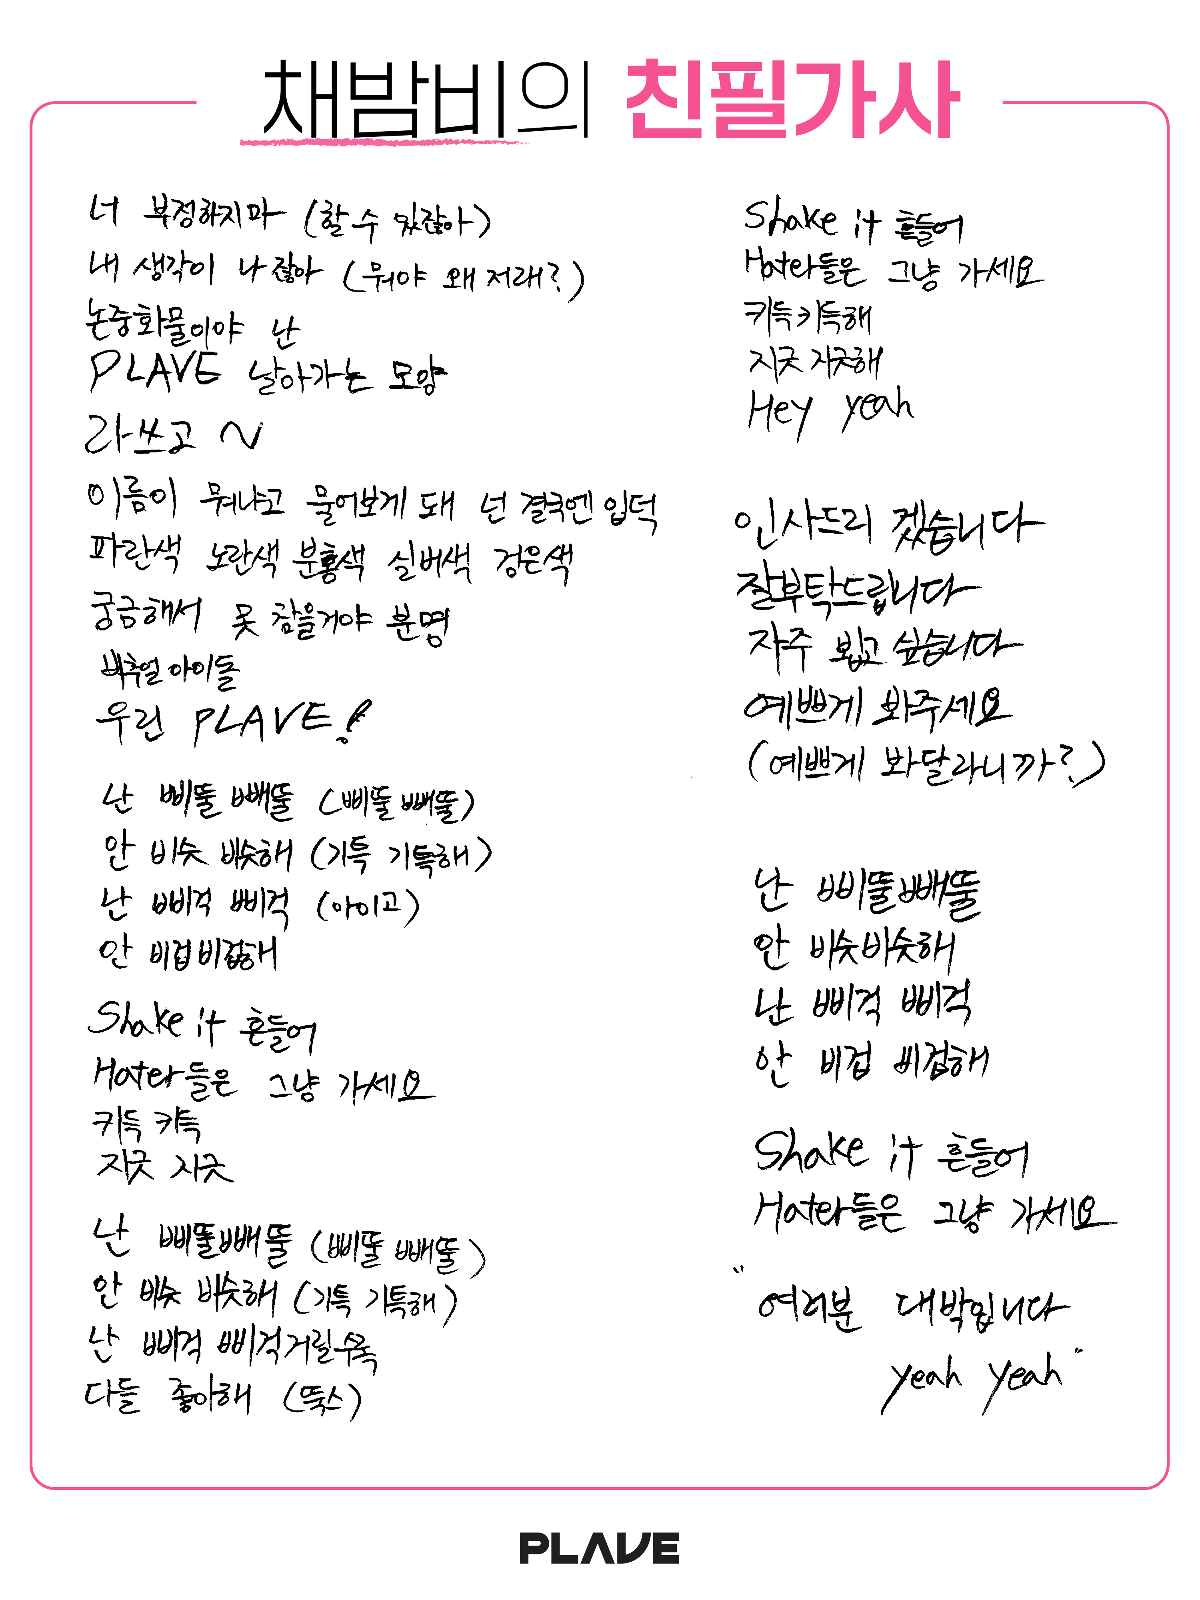 채밤비의 친필가사
너 부정하지마 (할 수 있잖아)
내 생각이 나잖아 (뭐야 왜 저래?)
논중화물이야 난
PLAVE 날아가는 모양
라쓰고 ~
이름이 뭐냐고 물어보게 돼 넌 결국엔 입덕
파란색 노란색 분홍색 실버색 검은색
궁금해서 못 참을거야 분명
버추얼 아이돌
우린 PLAVE!
난 삐뚤빼뚤 (삐뚤빼뚤)
안 비슷 비슷해 (기특 기특해)
난 삐걱 삐걱 (아이고)
안 비겁비겁해
Shake it 흔들어
Hater들은 그냥 가세요
키득 키득
지긋 지긋
난 삐뚤빼뚤 (삐뚤 빼뚤)
안 비슷 비슷해 (기특 기특해)
난 삐걱 삐걱거릴수록
다들 좋아해 (뚝스)
Shake it 흔들어
Hater들은 그냥 가세요
키득키득해
지긋 지긋해
Hey yeah
인사드리 겠습니다
잘부탁드립니다
자주 뵙고 싶습니다
예쁘게 봐주세요
(예쁘게 봐달라니까?)
난 삐뚤빼뚤
안 비슷비슷해
난 삐걱 삐걱
안 비겁 비겁해
Shake it 흔들어
Hater들은 그냥 가세요
"여러분 대박입니다
yeah yeah"
PLAVE